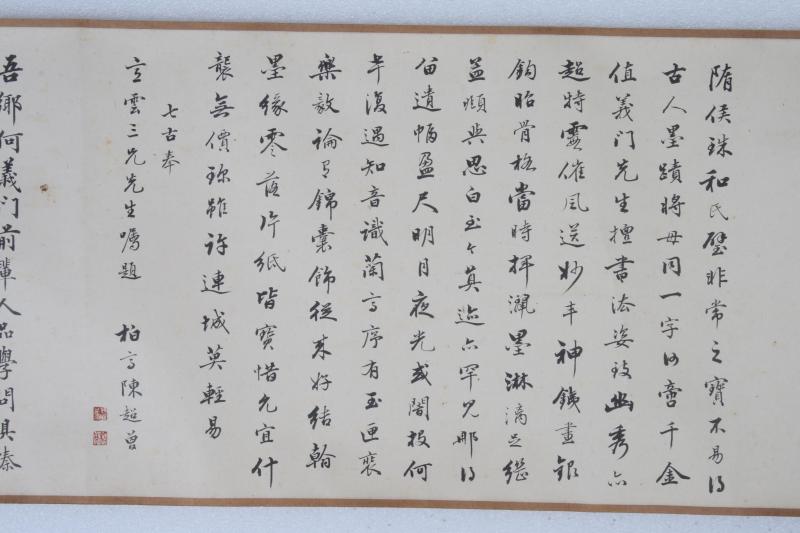 隋侯珠和氏璧非常之寶不易得
古人墨蹟將毋同一字何啻千金
值義门先生擅書法姿致幽秀亦
超特雲催風送妙年神鐵畫銀
鈎貽骨格當時揮灑墨淋漓足繼
益頤與思白玉今真迹亦罕見那得
留遺幅盈尺明月夜光或闇投何
年復遇知音識蘭亭序有玉匣裹
樂毅論有錦囊飾從来好結翰
墨緣零落片紙皆寶惜允宜什
襲無價珍雖許連城莫輕易
七古奉
雲三兄先生囑題
柏亭陳超曾
吾鄉何義门前輩人品學問具臻